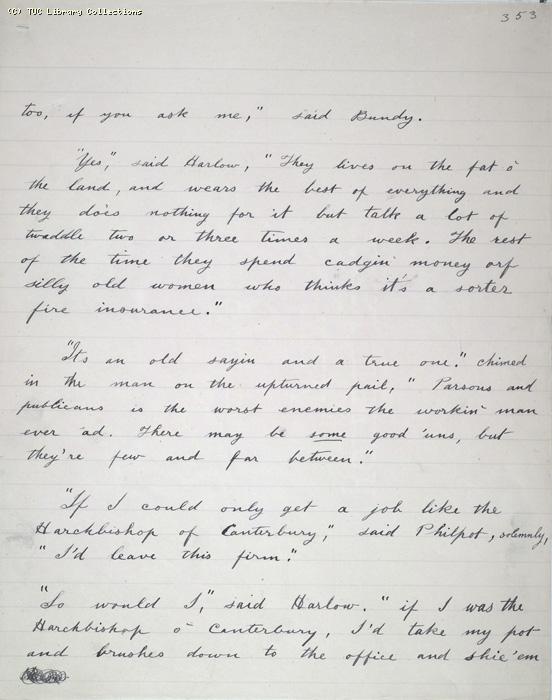 (C) TUC Library Collections
353
too, if you ask me," said Bundy.
"Yes," said Harlow, "They lives on the fat o'
the land, and wears the best of everything and
they does nothing for it but talk a lot of
twaddle two or three times a week. The rest
of the time they spend cadgin' money orf
silly old women who thinks it's a sorter
fire insurance."
"It's an old sayin and a true one." chimed
in the man on the upturned pail, "Parsons and
publicans is the worst enemies the workin' man
ever 'ad. There may be some good 'uns, but
they're few and far between."
"If I could only get a job like the
Harchbishop of Canterbury," said Philpot, solemnly,
"I'd leave this firm."
"So would I," said Harlow. "if I was the
Harchbishop o' Canterbury, I'd take my pot
and brushes down to the office and shie 'em